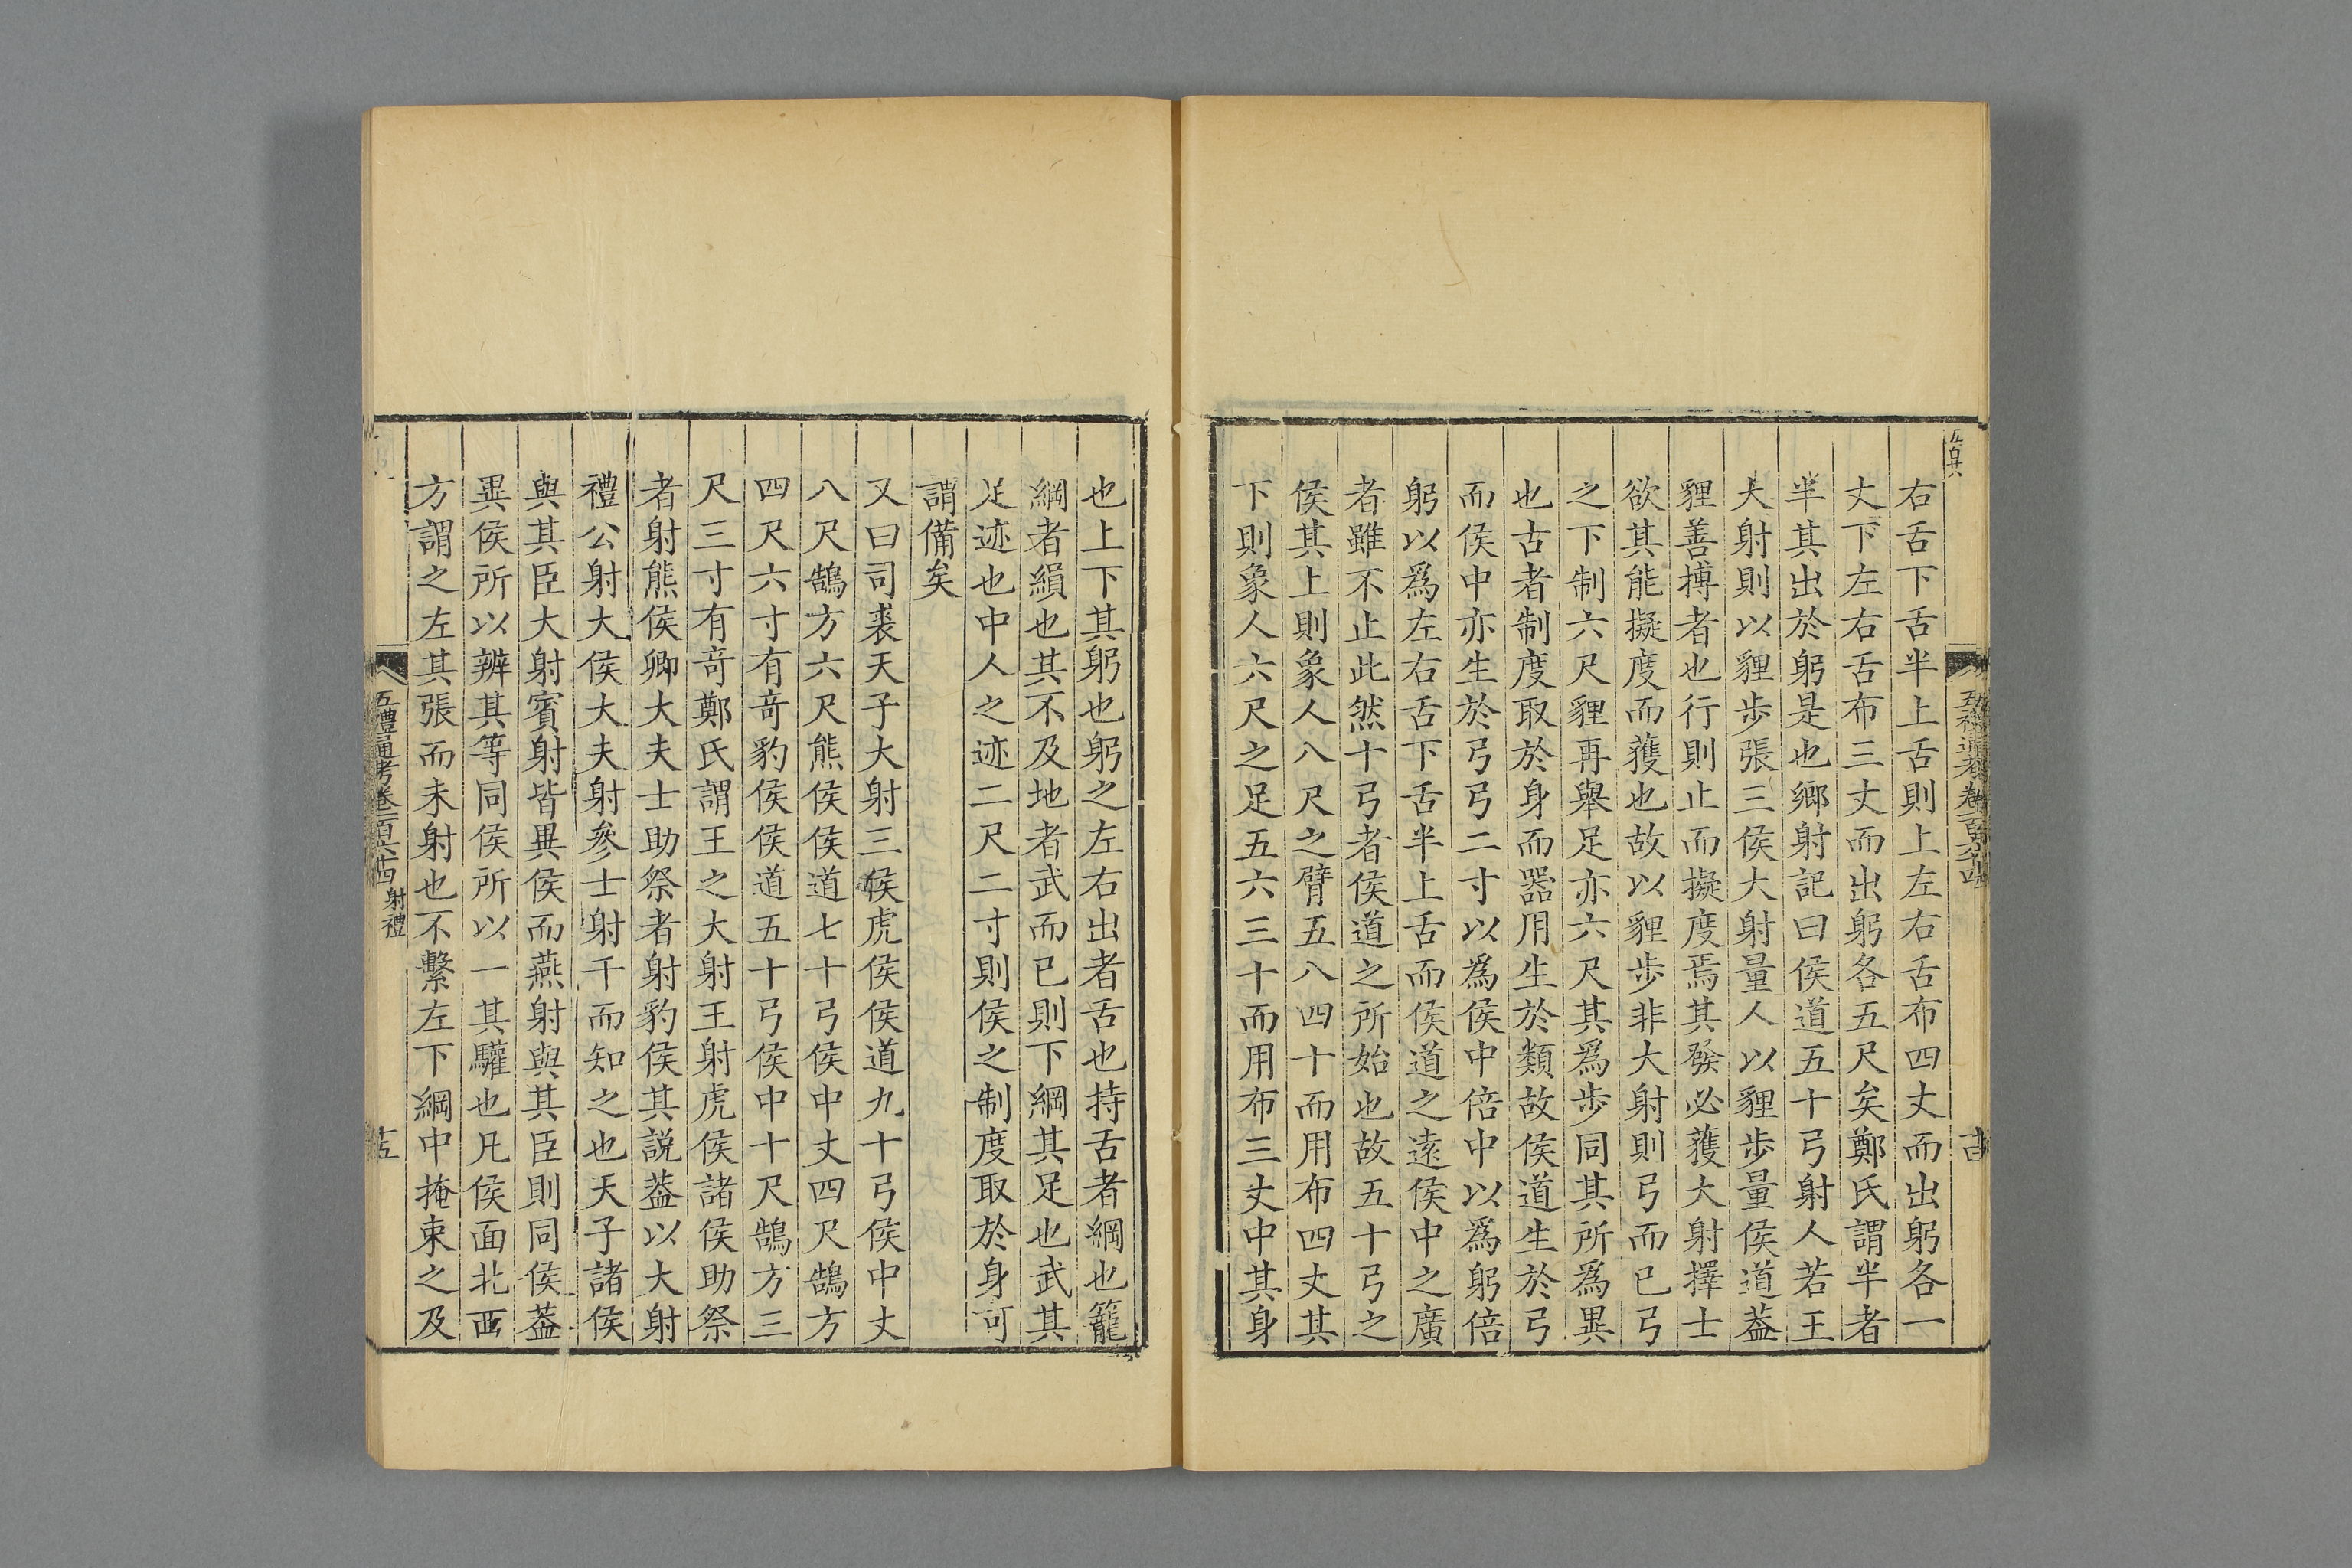 五百廿六
右舌下舌半上舌則上左右舌布四丈而出躬各一
丈下左右舌布三丈而出躬各五尺矣鄭氏謂半者
半其出於躬是也鄉射記曰侯道五十弓射人若王
大射則以貍步張三侯大射量人以貍步量侯道葢
貍善搏者也行則止而擬度焉其發必獲大射擇士
欲其能擬度而獲也故以貍步非大射則弓而已弓
之下制六尺貍再舉足亦六尺其為步同其所為異
也古者制度取於身而器用生於類故侯道生於弓
而侯中亦生於弓弓二寸以為侯中倍中以為躬倍
躬以為左右舌下舌半上舌而侯道之遠侯中之廣
者雖不止此然十弓者侯道之所始也故五十弓之
侯其上則象人八尺之臂五八四十而用布四丈其
下則象人六尺之足五六三十而用布三丈中其身
也上下其躬也躬之左右出者舌也持舌者綱也籠
綱者縜也其不及地者武而已則下綱其足也武其
足迹也中人之迹二尺二寸則侯之制度取於身可
謂備矣
又曰司裘天子大射三侯虎侯侯道九十弓侯中丈
八尺鵠方六尺熊侯侯道七十弓侯中丈四尺鵠方
四尺六寸有奇豹侯侯道五十弓侯中十尺鵠方三
尺三寸有奇鄭氏謂王之大射王射虎侯諸侯助祭
者射熊侯卿大夫士助祭者射豹侯其說葢以大射
禮公射大侯大夫射參士射干而知之也天子諸侯
與其臣大射賓射皆異侯而燕射與其臣則同侯葢
異侯所以辨其等同侯所以一其驩也凡侯面北西
方謂之左其張而未射也不繫左下綱中掩束之及
五禮通考卷一百六十四 射禮
十五